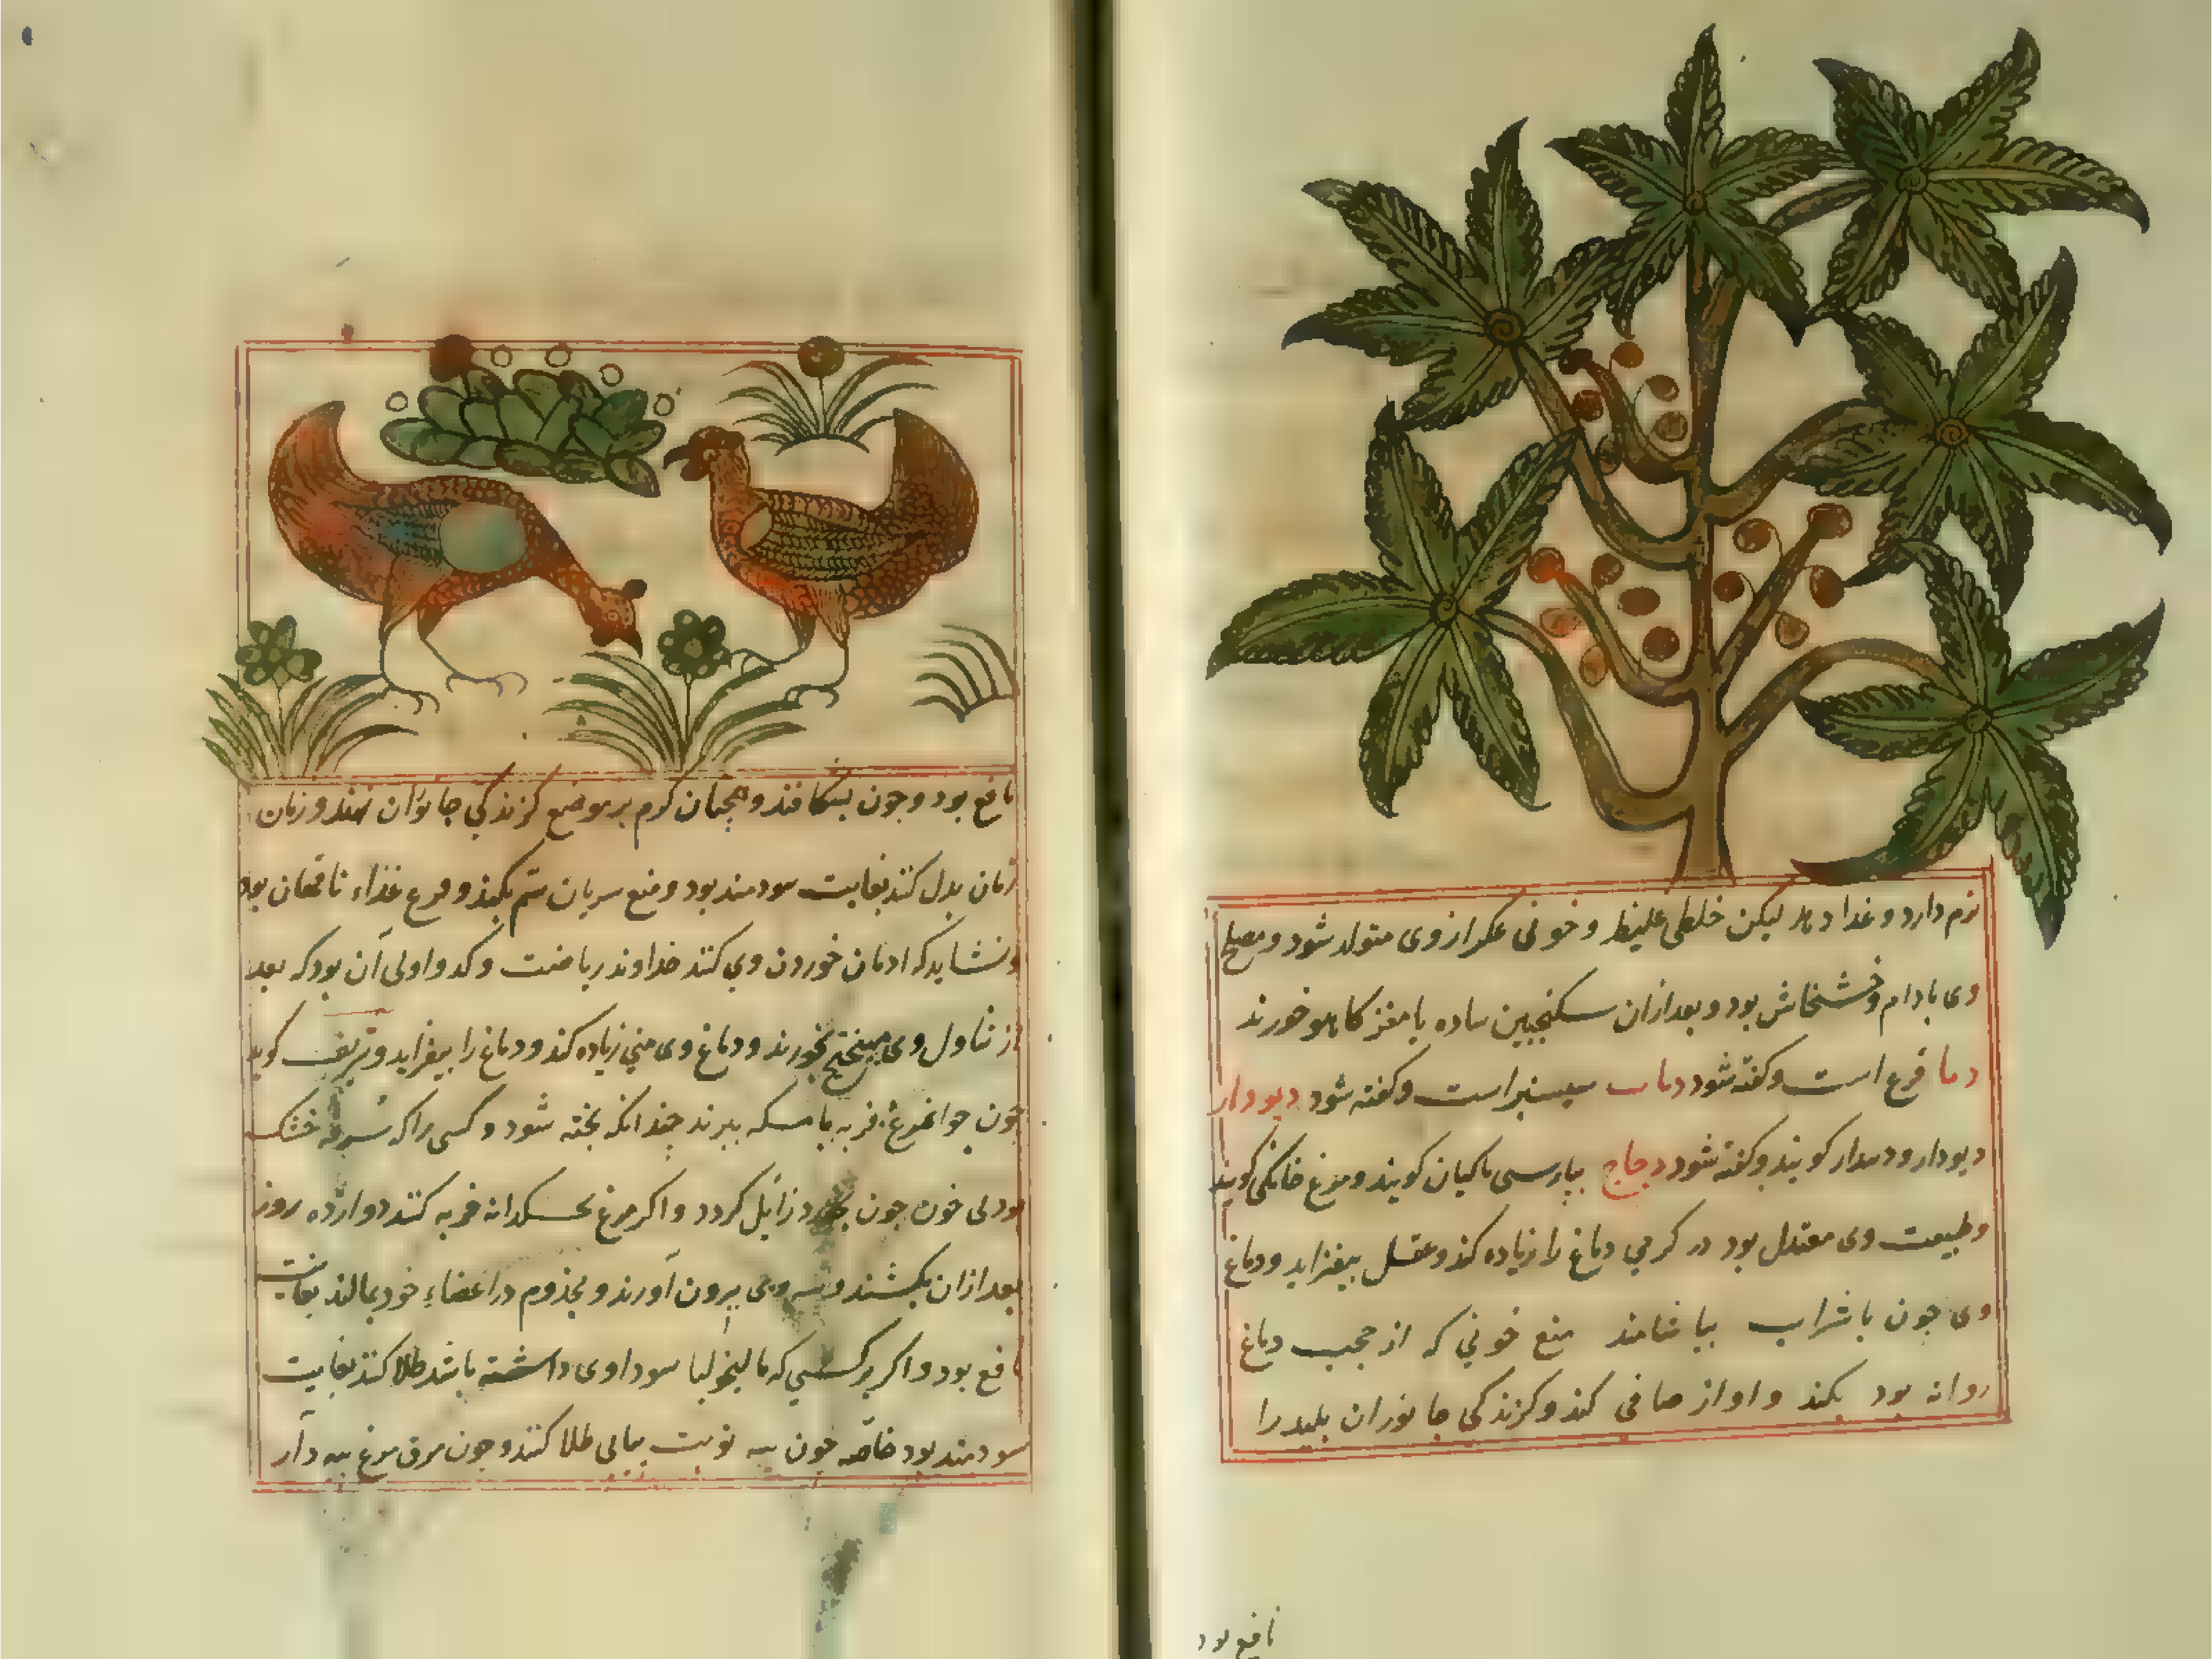 نرم دارد و غذا دهد لیکن خلطی غلیظ و خونی عکر از وی متولد شود و مصلح
وی بادام و خشخاش بود و بعد ازان سکنجبین ساده با مغز کاهو خورند
دما فرع است و کفته شود دماب سیسنبر است و کفته شود دیودار
دیودار و دیدار کویند و کفته شود دجاج بپارسی ماکیان کویند و مرغ خانکی کویند
و طبیعت وی معتدل بود در کرمی دماغ را زیاده کند و عقل بیفزاید و دماغ
وی جون با شراب بیاشامند منع خونی که از حجب دماغ
روانه بود بکند و اواز صافی کند و کزندکی جانوران بلید را
نافع بود
نافع بود و جون بشکافند و همجنان کرم بر موضع کزندکی جانوران نهند و زمان
زمان بدل کنند بغایت سودمند بود و منع سریان سم بکند و مرغ غذاء ناقهان بود
و نشاید که ادمان خوردن وی کنند خداوند ریاضت و کد و اولی آن بود که بعد
از تناول وی میبختج بخورند و دماغ وی منی زیاده کند و دماغ را بیفزاید و شریف کوید
جون جوانمرغ فربه با مسکه ببرند جندانکه بخته شود و کسی را که سرفه خشک
بود بی خون جون بخورد زایل کردد و اکر مرغ بخسکدانه فربه کنند دوازده روز
بعد ازان بکشند و پیه وی بیرون آورند و مجذوم در اعضاء خود بمالند بغایت
نافع بود و اکر بر کسی که مالیخولیا سوداوی داشته باشد طلا کنند بغایت
سودمند بود خاصه جون سه نوبت بیابی طلا کنند و جون مرق مرغ پیه دار